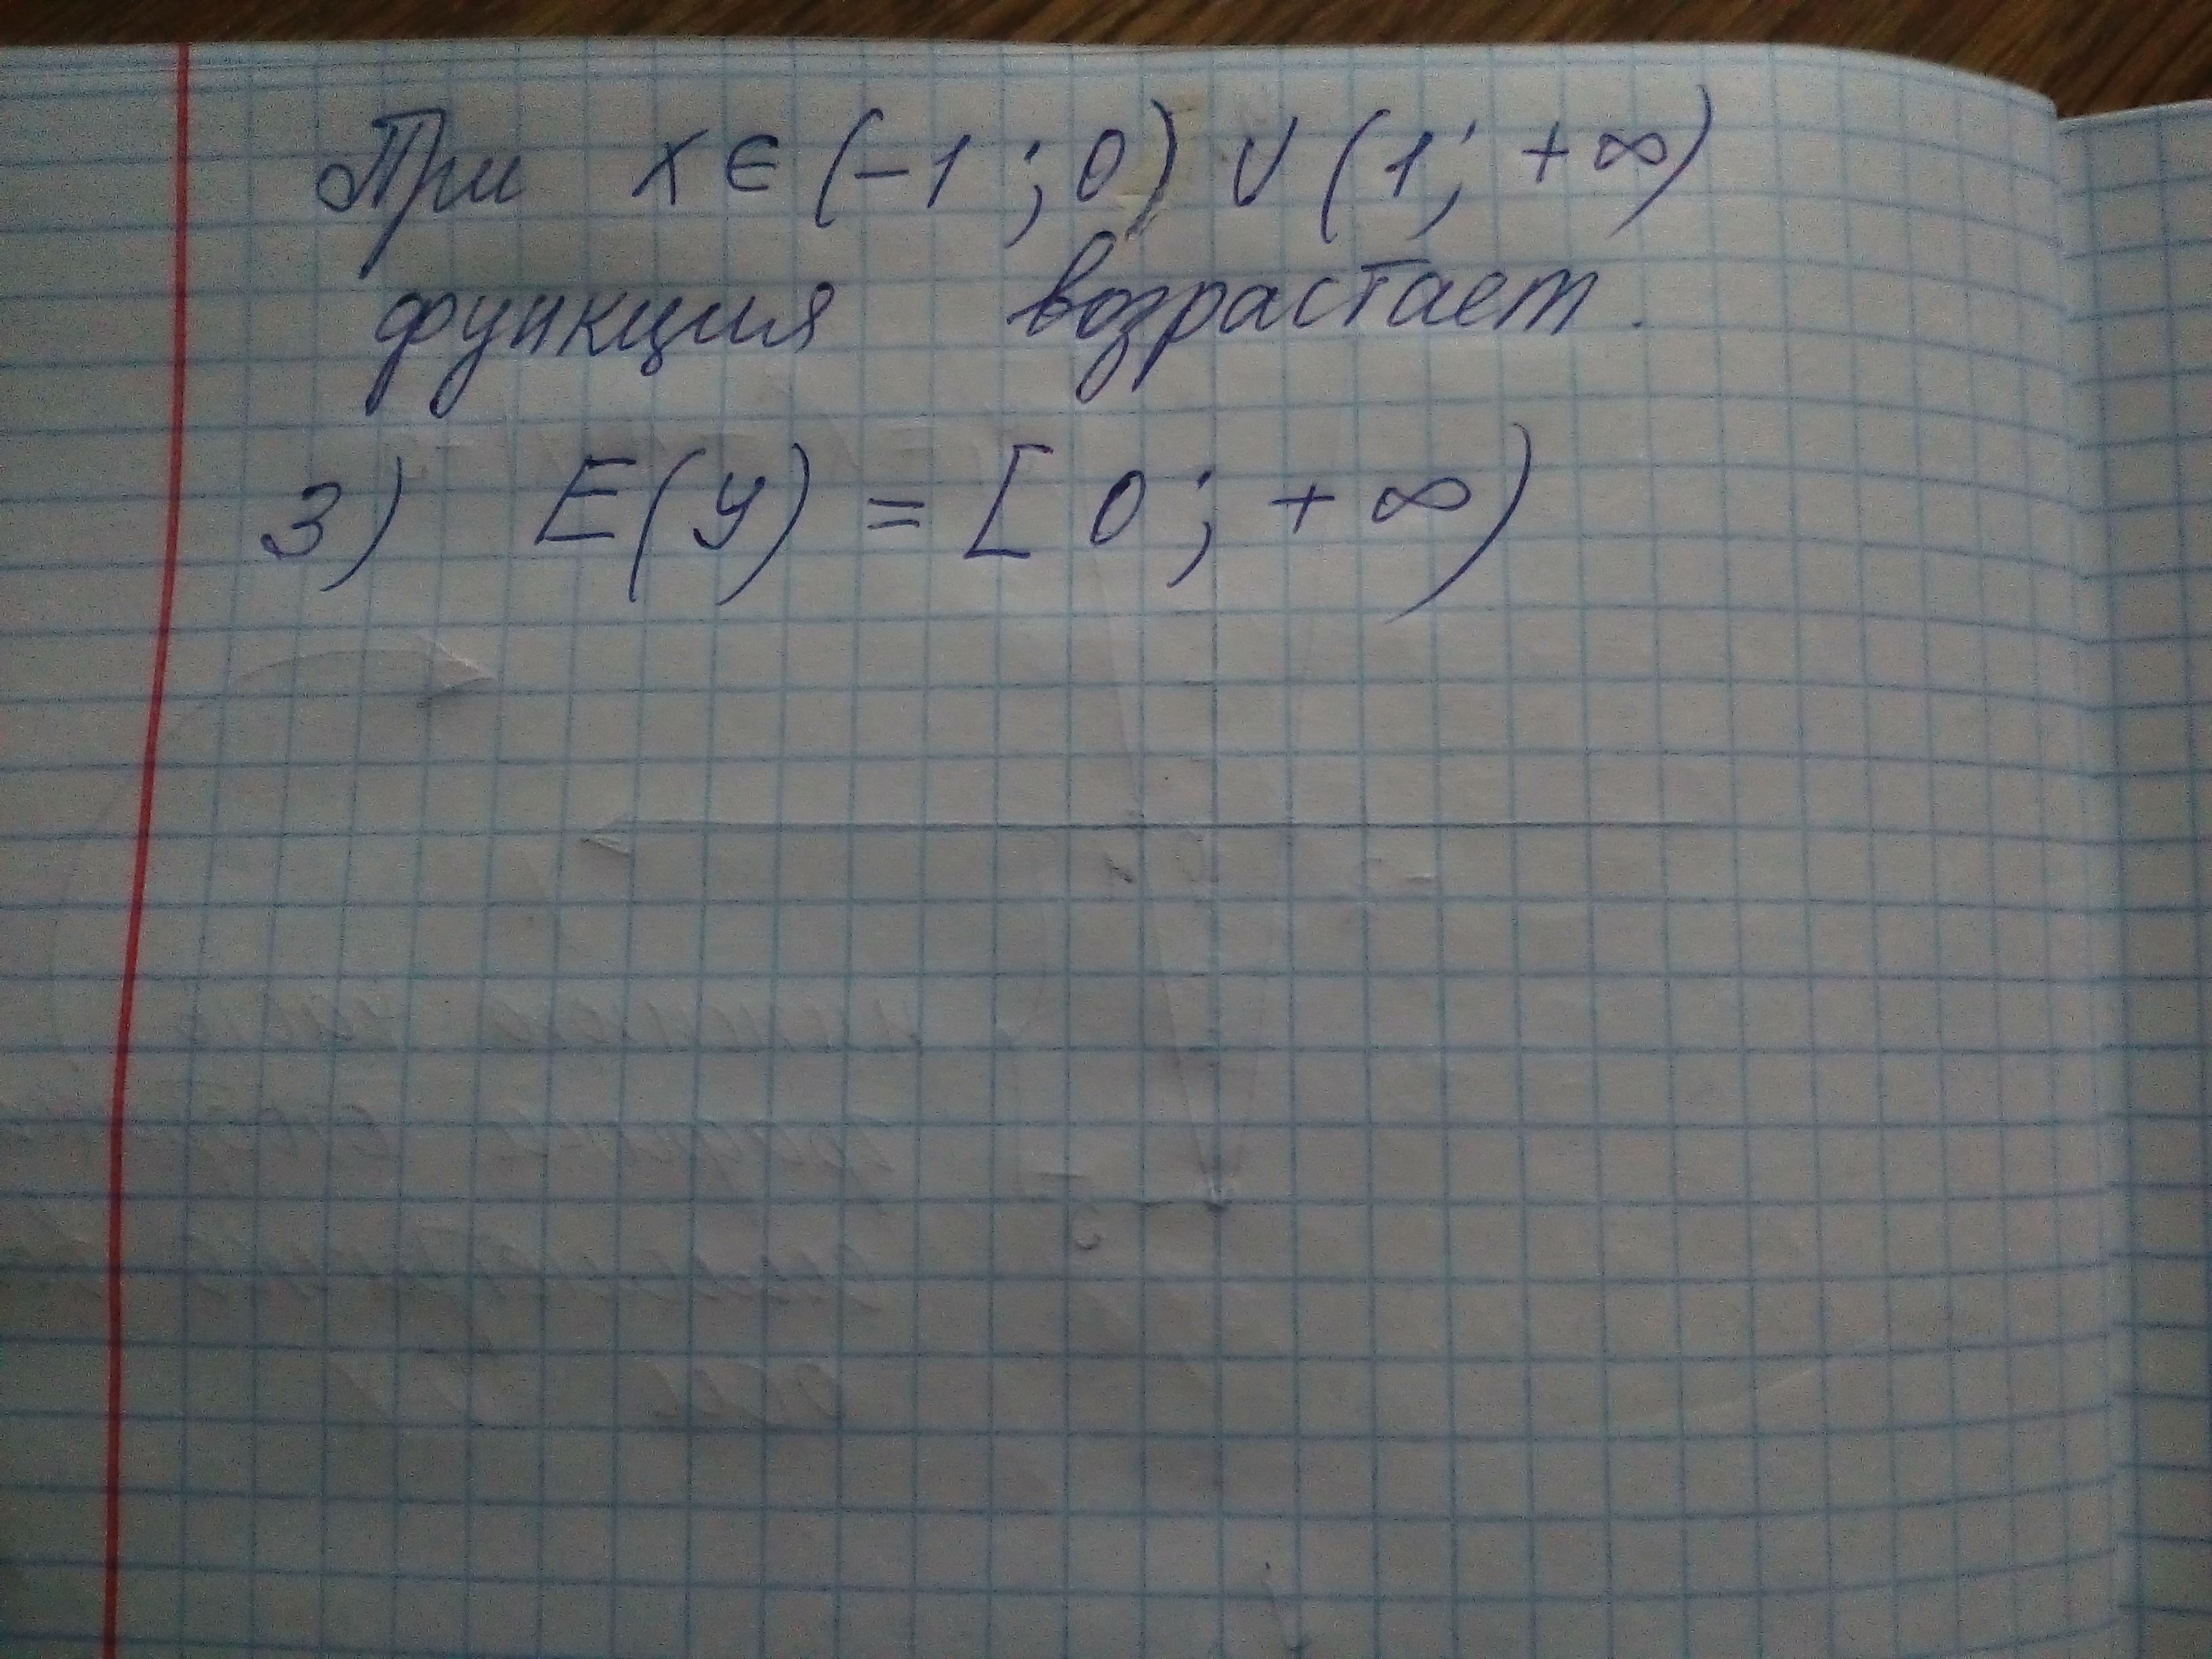 При x ∈ (-1; 0) ∪ (1; +∞)
функция возрастает.
3) E(y) = [0; +∞)